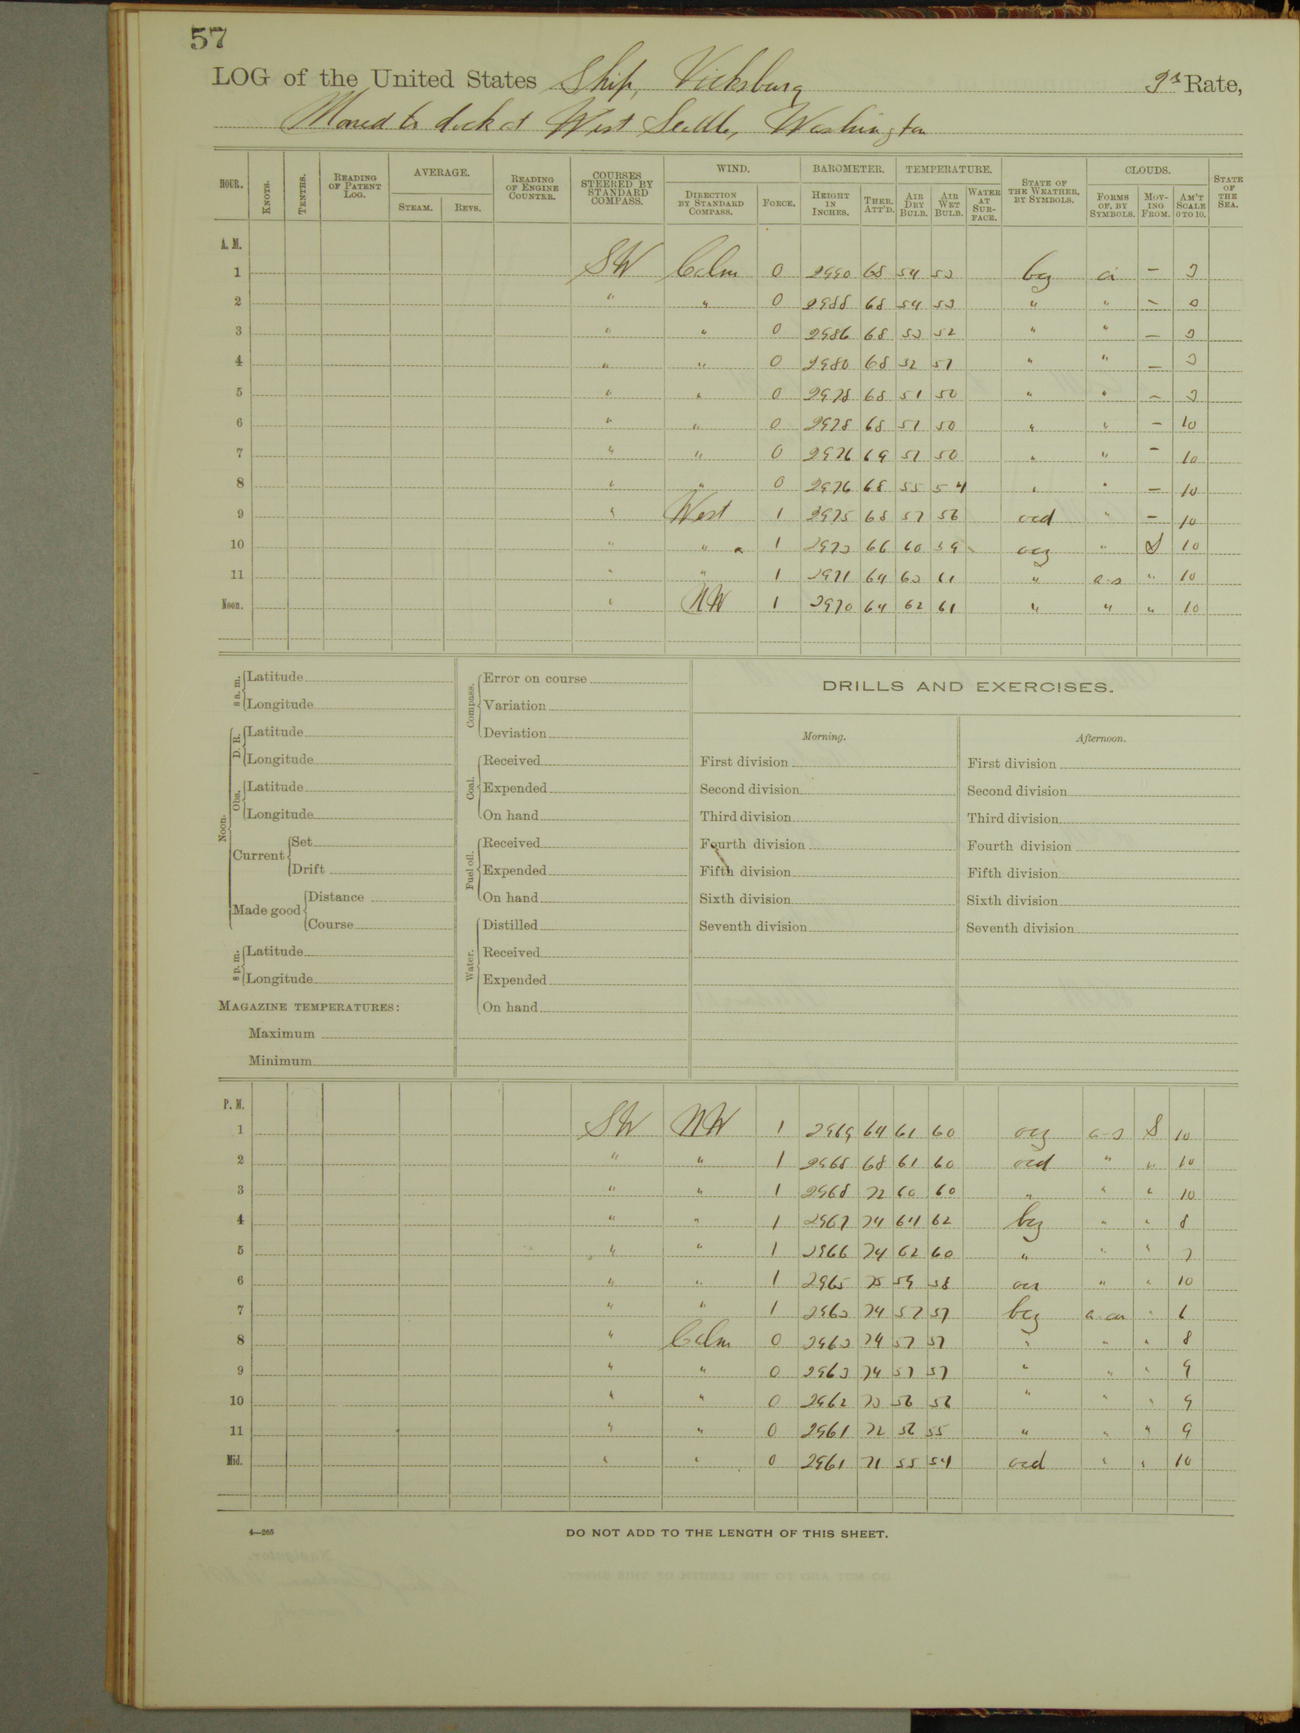 57
LOG of the United States Ship, Vicksburg 3d Rate,
Moored to dock at West Seattle, Washington
HOUR. KNOTS. TENTHS. READING OF PATENT LOG. AVERAGE. STEAM. REVS. READING OF ENGINE COUNTER. COURSES STEERED BY STANDARD COMPASS. WIND. DIRECTION BY STANDARD COMPASS. FORCE. BAROMETER. HEIGHT IN INCHES. THER. ATT'D. TEMPERATURE. AIR DRY BULB. AIR WET BULB. WATER AT SURFACE. STATE OF THE WEATHER, BY SYMBOLS. CLOUDS. FORMS OF, BY SYMBOLS. MOVING FROM. AM'T SCALE 0 TO 10. STATE OF THE SEA.
A. M.
1 SW Calm 0 2990 68 54 53 bcz ci — 3
2 " " 0 2988 68 54 53 " " —
3 " " 0 2986 68 53 52 " " — 3
4 " " 0 2980 68 52 51 " " — 3
5 " " 0 2978 68 51 50 " " — 3
6 " " 0 2978 68 51 50 " " — 10
7 " " 0 2976 69 51 50 " " — 10
8 " " 0 2976 68 55 54 " " — 10
9 " West 1 2975 68 57 56 ocd " — 10
10 " " 1 2973 66 60 59 ocz " S 10
11 " " 1 2971 64 63 61 " a-s " 10
Noon. " NW 1 2970 64 62 61 " " " 10
8 a. m. Latitude
Longitude
Noon. D. R. Latitude
Longitude
Obs. Latitude
Longitude
Current Set
Drift
Made good Distance
Course
8 p. m. Latitude
Longitude
MAGAZINE TEMPERATURES:
Maximum
Minimum
Compass. Error on course
Variation
Deviation
Coal. Received
Expended
On hand
Fuel oil. Received
Expended
On hand
Water. Distilled
Received
Expended
On hand
DRILLS AND EXERCISES.
Morning.
First division
Second division
Third division
Fourth division
Fifth division
Sixth division
Seventh division
Afternoon.
First division
Second division
Third division
Fourth division
Fifth division
Sixth division
Seventh division
P. M.
1 SW NW 1 2969 64 61 60 ocz a-s S 10
2 " " 1 2968 68 61 60 ocd " " 10
3 " " 1 2968 72 60 60 " " " 10
4 " " 1 2967 74 64 62 bcz " " 8
5 " " 1 2966 74 62 60 " " " 7
6 " " 1 2965 75 59 58 " " 10
7 " " 1 2963 74 57 57 bcz a-cu " 6
8 " Calm 0 2963 74 57 57 " " " 8
9 " " 0 2963 74 57 57 " " " 9
10 " " 0 2962 73 56 56 " " " 9
11 " " 0 2961 72 56 55 " " " 9
Mid. " " 0 2961 71 55 54 ocd " " 10
4—265
DO NOT ADD TO THE LENGTH OF THIS SHEET.